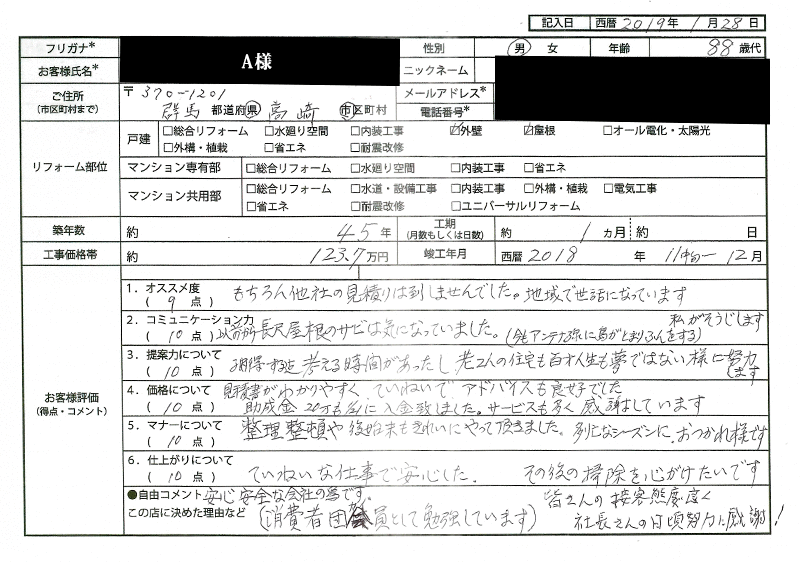 記入日 西暦 2019年 1月28日
フリガナ* A様 性別 男 女 年齢 88歳代
お客様氏名* ニックネーム
ご住所 (市区町村まで) 〒370-1201 メールアドレス*
群馬 都道府県 高崎 市区町村 電話番号*
リフォーム部位
戸建 □総合リフォーム □水廻り空間 □内装工事 ☑外壁 ☑屋根 □オール電化・太陽光
□外構・植栽 □省エネ □耐震改修
マンション専有部 □総合リフォーム □水廻り空間 □内装工事 □省エネ
マンション共用部 □総合リフォーム □水道・設備工事 □内装工事 □外構・植栽 □電気工事
□省エネ □耐震改修 □ユニバーサルリフォーム
築年数 約 45年 工期 (月数もしくは日数) 約 1ヵ月 約 日
工事価格帯 約 123.7万円 竣工年月 西暦 2018年 11中旬〜12月
お客様評価 (得点・コメント)
1．オススメ度 もちろん他社の見積りは致しませんでした。地域で世話になっています
( 9 点)
2．コミュニケーション力 私がそうじします
( 10 点) 以前から長尺屋根のサビは気になっていました。(今もアンテナ線に鳥がとまりふんをする)
3．提案力について 考える時間があったし 老2人の住宅も百才人生も夢ではない様に努力
( 10 点) します
4．価格について 見積書がわかりやすく、ていねいで、アドバイスも良好でした
( 10 点) 助成金20万も入金致しました。サービスも多く感謝しています
5．マナーについて 整理整頓や後始末もきれいにやって頂きました。シーズンに、おつかれ様です
( 10 点)
6．仕上がりについて
( 10 点) ていねいな仕事で安心した。その後の掃除を心がけたいです
●自由コメント 安心安全な会社の 皆さんの接客態度良く
この店に決めた理由など (消費者団員として勉強しています) 社長さんの日頃努力に感謝!